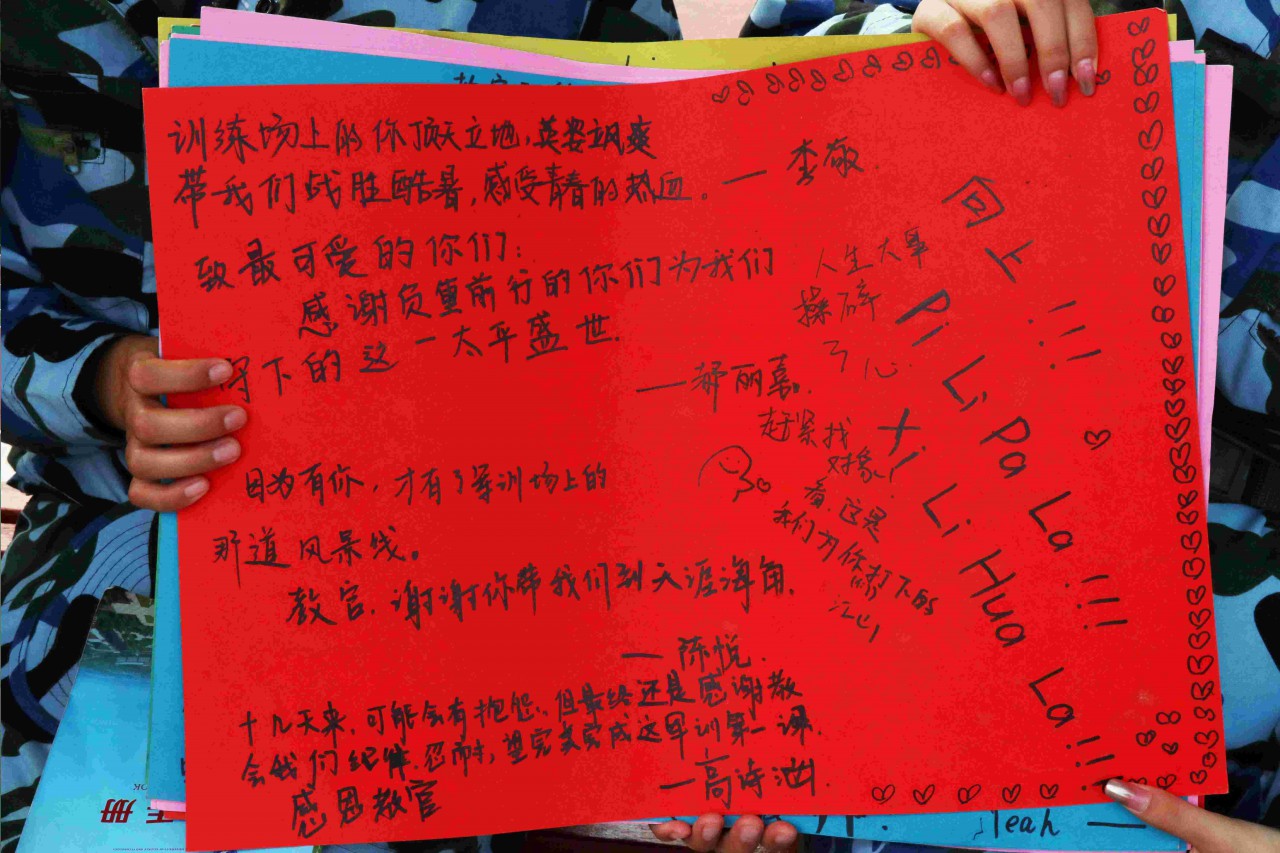 训练场上的你顶天立地,英姿飒爽
带我们战胜酷暑,感受青春的热血。— 李敬
致最可爱的你们:
感谢负重前行的你们为我们
守下的这一太平盛世.
—舒丽嘉.
因为有你,才有了军训场上的
那道风景线。
教官.谢谢你带我们到天涯海角.
— 陈悦.
十几天来,可能会有抱怨.但最终还是感谢教
会我们纪律.忍耐,望完美完成这军训第一课.
—高诗
感恩教官
向上!!!
Pi Li Pa La!!!
Xi Li Hua La!!!
人生大事
操碎
了心.
赶紧找
对象!
看.这是
我们为你打下的
们
江山
Yeah —
册